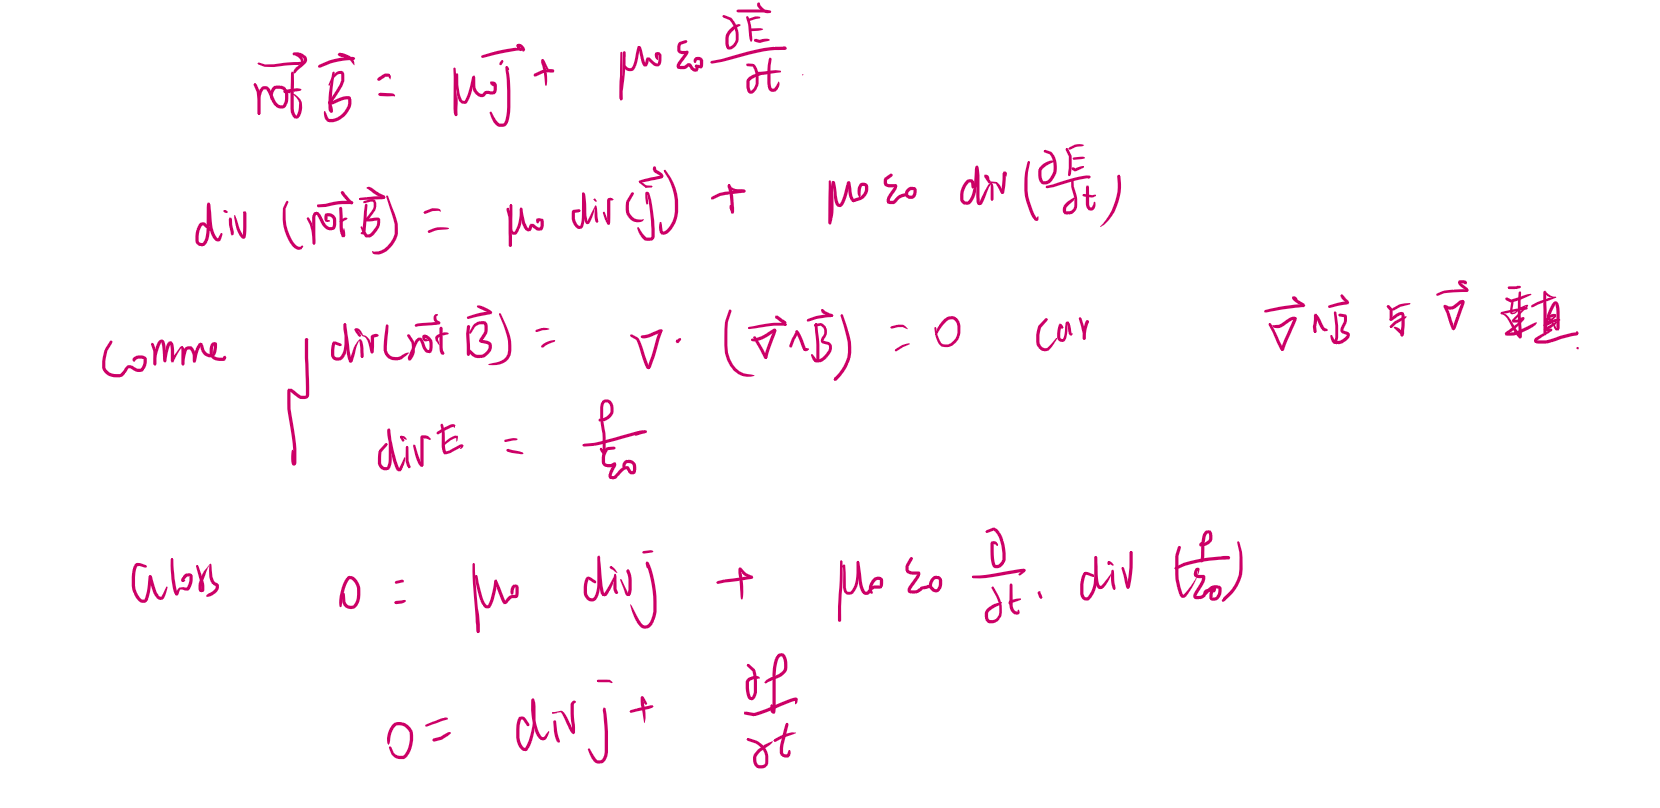 $\overrightarrow{rot}\ \vec{B} = \mu_0 \vec{j} + \mu_0 \varepsilon_0 \frac{\partial \vec{E}}{\partial t}$
$div\ (\overrightarrow{rot}\ \vec{B}) = \mu_0\ div(\vec{j}) + \mu_0 \varepsilon_0\ div\left(\frac{\partial \vec{E}}{\partial t}\right)$
Comme $div(\overrightarrow{rot}\ \vec{B}) = \nabla \cdot (\vec{\nabla} \wedge \vec{B}) = 0$ car $\vec{\nabla} \wedge \vec{B}$ 与 $\vec{\nabla}$ 垂直.
$div E = \frac{\rho}{\varepsilon_0}$
alors $0 = \mu_0\ div \bar{j} + \mu_0 \varepsilon_0 \frac{\partial}{\partial t} \cdot div\left(\frac{\rho}{\varepsilon_0}\right)$
$0 = div \bar{j} + \frac{\partial \rho}{\partial t}$